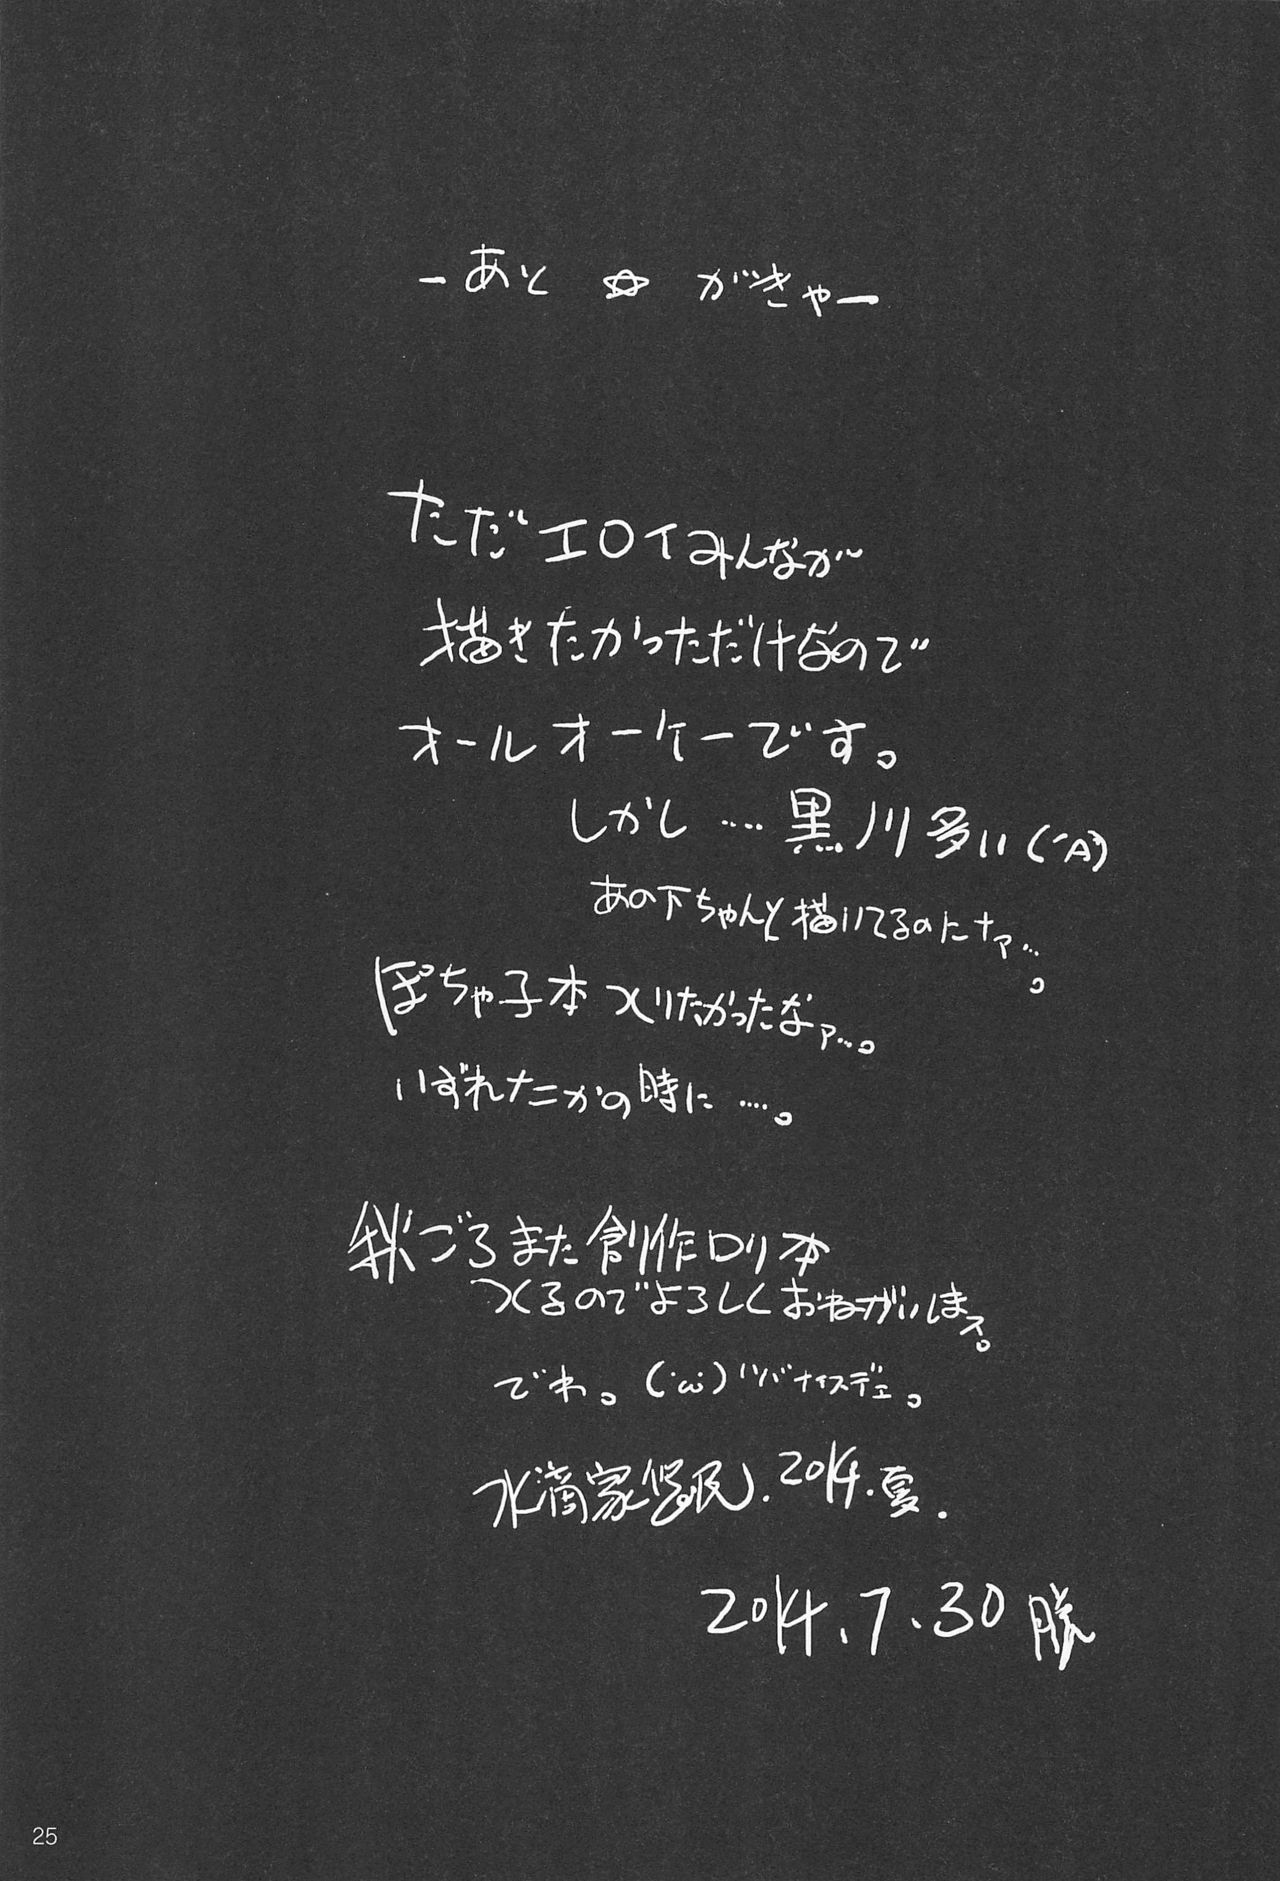 -あと☆がきゃー
ただエロイみんなが
描きたかっただけなので
オールオーケーです。
しかし‥‥黒ノリ多い(´A`)
あの下ちゃんと描いてるのにナァ…。
ぽちゃ子本つくりたかったなァ…。
いずれナニかの時に‥‥。
秋ごろまた創作ロリ本
つくるのでよろしくおねがいしまス。
でわ。(・ω・)ツバナイスデェ。
水滴家 2014.夏.
2014.7.30
25